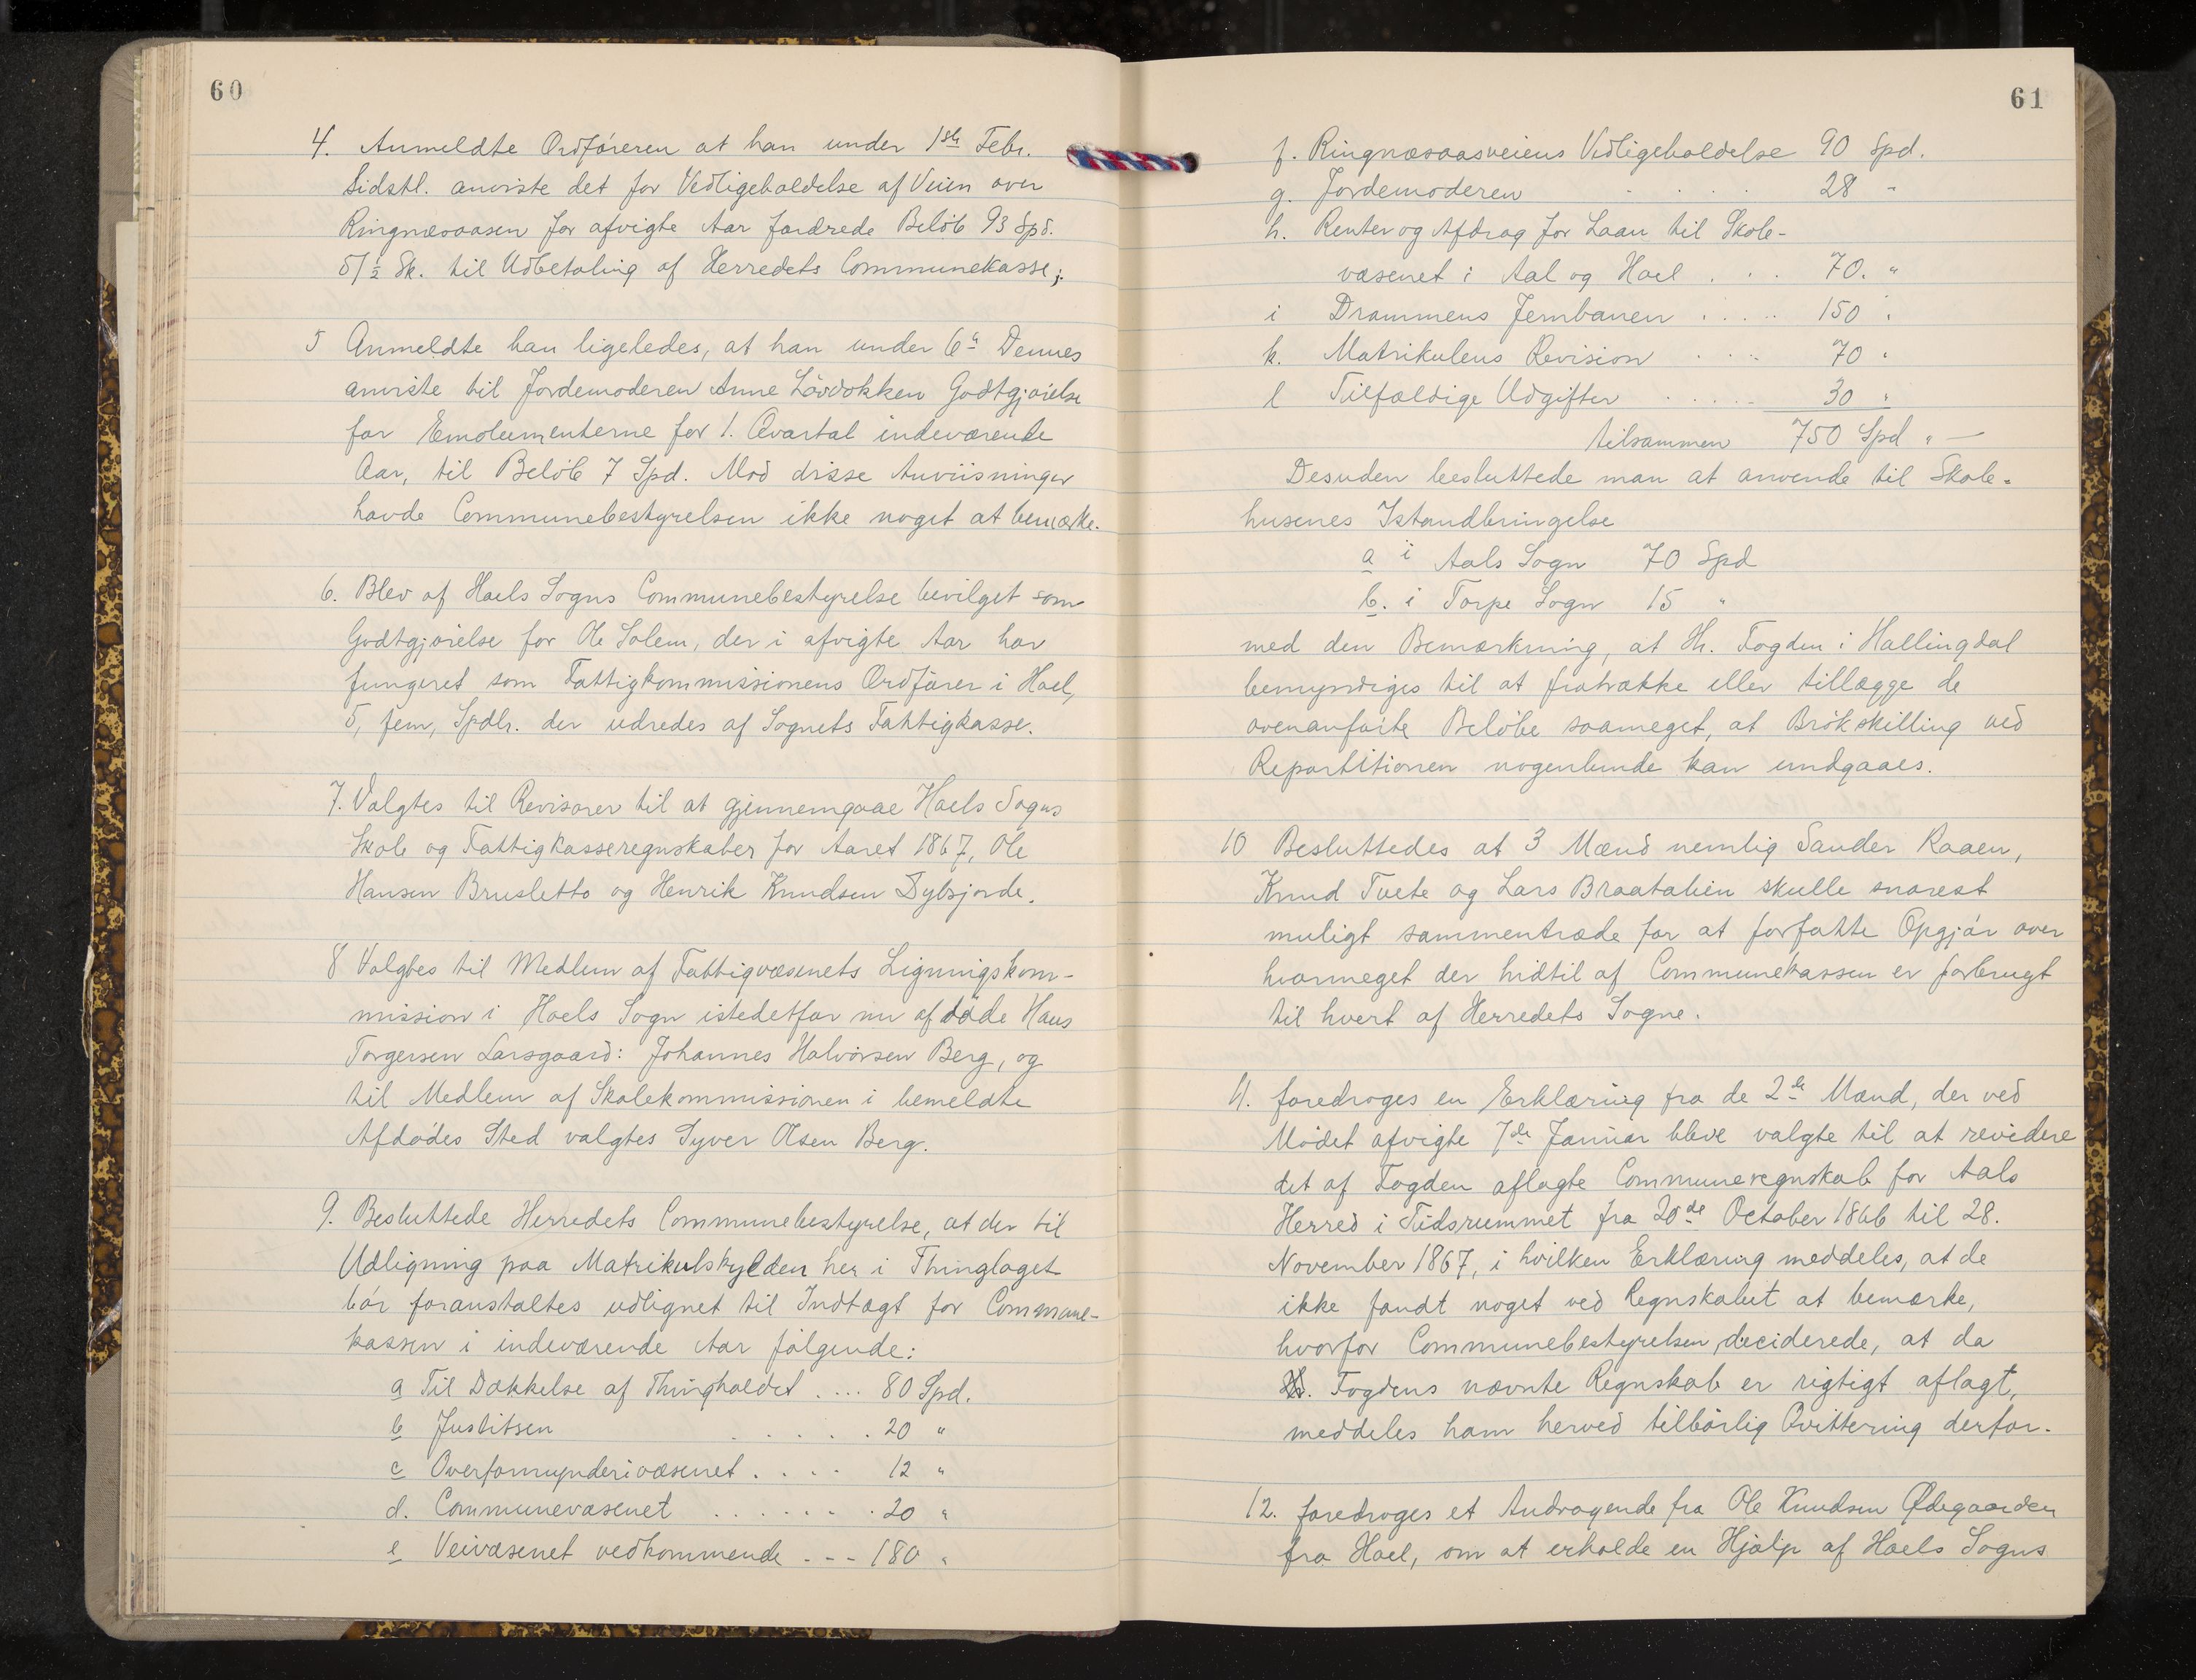 60
4. Anmeldte Ordføreren at han under 1ste Febr.
Sidstl. anviste det for Vedligeholdelse af Veien over
Ringnæsaasen for afvigte Aar fordrede Beløb 93 Spd.
51/2 Sk. til Udbetaling af Herredets Communekasse;
5 Anmeldte han ligeledes, at han under 6te Dennes
anviste til Jordemoderen Anne Løvdokken Godtgjørelse
for Emolumenterne for 1. Qvartal indeværende
Aar, til Beløb 7 Spd. Mod disse Anviisninger
havde Communebestyrelsen ikke noget at bemærke.
6. Blev af Hols Sogns Communebestyrelse bevilget som
Godtgjørelse for Ole Solem, der i afvigte Aar har
fungeret som Fattigkommissionens Ordfører i Hol,
5, fem, Spdlr. der udredes af Sognets Fattigkasse.
7. Valgtes til Revisorer til at gjennemgaae Hols Sogns
Skole og Fattigkasseregnskaber for Aaret 1867, Ole
Hansen Brusletto og Henrik Knudsen Sylsjorde.
8 Valgtes til Medlem af Fattigvæsenets Ligningskom-
mission i Hols Sogn istedetfor nu afdøde Hans
Torgersen Larsgaard: Johannes Halvorsen Berg, og
til Medlem af Skolekommissionen i bemeldte
Afdødes Sted valgtes Syver Olsen Berg.
9. Besluttede Herredets Communebestyrelse, at der til
Udligning paa Matrikulskylden her i Thinglaget
bør foranstaltes udlignet til Indtægt for Commune-
kassen i indeværende Aar følgende:
a Til Dækkelse af Thingholdet .... 80 Spd.
b Justitsen . . . . . 20 "
c Overformynderivæsenet . . . . 12 "
d. Communevæsenet . . . . . . 20 "
e Veivæsenet vedkommende - - - 180 "
61
f. Ringnæsaasveiens Vedligeholdelse 90 Spd.
g. Jordemoderen . . . . 28 "
h. Renter og Afdrag for Laan til Skole-
væsenet i Aal og Hol . . . 70. "
i Drammens Jernbanen . . . . . 150 "
k. Matrikulens Revision . . . . 70 "
l Tilfældige Udgifter . . . . . 30 "
tilsammen 750 Spd " —
Desuden besluttede man at anvende til Skole-
husenes Istandbringelse
a i Aals Sogn 70 Spd
b. i Torpe Sogn 15 "
med den Bemærkning, at Hr. Fogden i Hallingdal
bemyndiges til at fratrække eller tillægge de
ovenanførte Beløbe saameget, at Brøkskilling ved
Repartitionen nogenlunde kan undgaaes.
10 Besluttedes at 3 Mænd nemlig Sander Raaen,
Knud Tvete og Lars Braatalien skulle snarest
muligt sammentræde for at forfatte Opgjør over
hvormeget der hidtil af Communekassen er forbrugt
til hvert af Herredets Sogne.
11. foredroges en Erklæring fra de 2de Mænd, der ved
Mødet afvigte 7de Januar bleve valgte til at revidere
det af Fogden aflagte Communeregnskab for Aals
Herred i Tidsrummet fra 20de October 1866 til 28.
November 1867, i hvilken Erklæring meddeles, at de
ikke fandt noget ved Regnskabet at bemærke,
hvorfor Communebestyrelsen deciderede, at da
Hr. Fogdens nævnte Regnskab er rigtigt aflagt,
meddeles ham herved tilbørlig Qvittering derfor.
12. foredroges et Andragende fra Ole Knudsen Ødegaarden
fra Hol, om at erholde en Hjælp af Hols Sogns